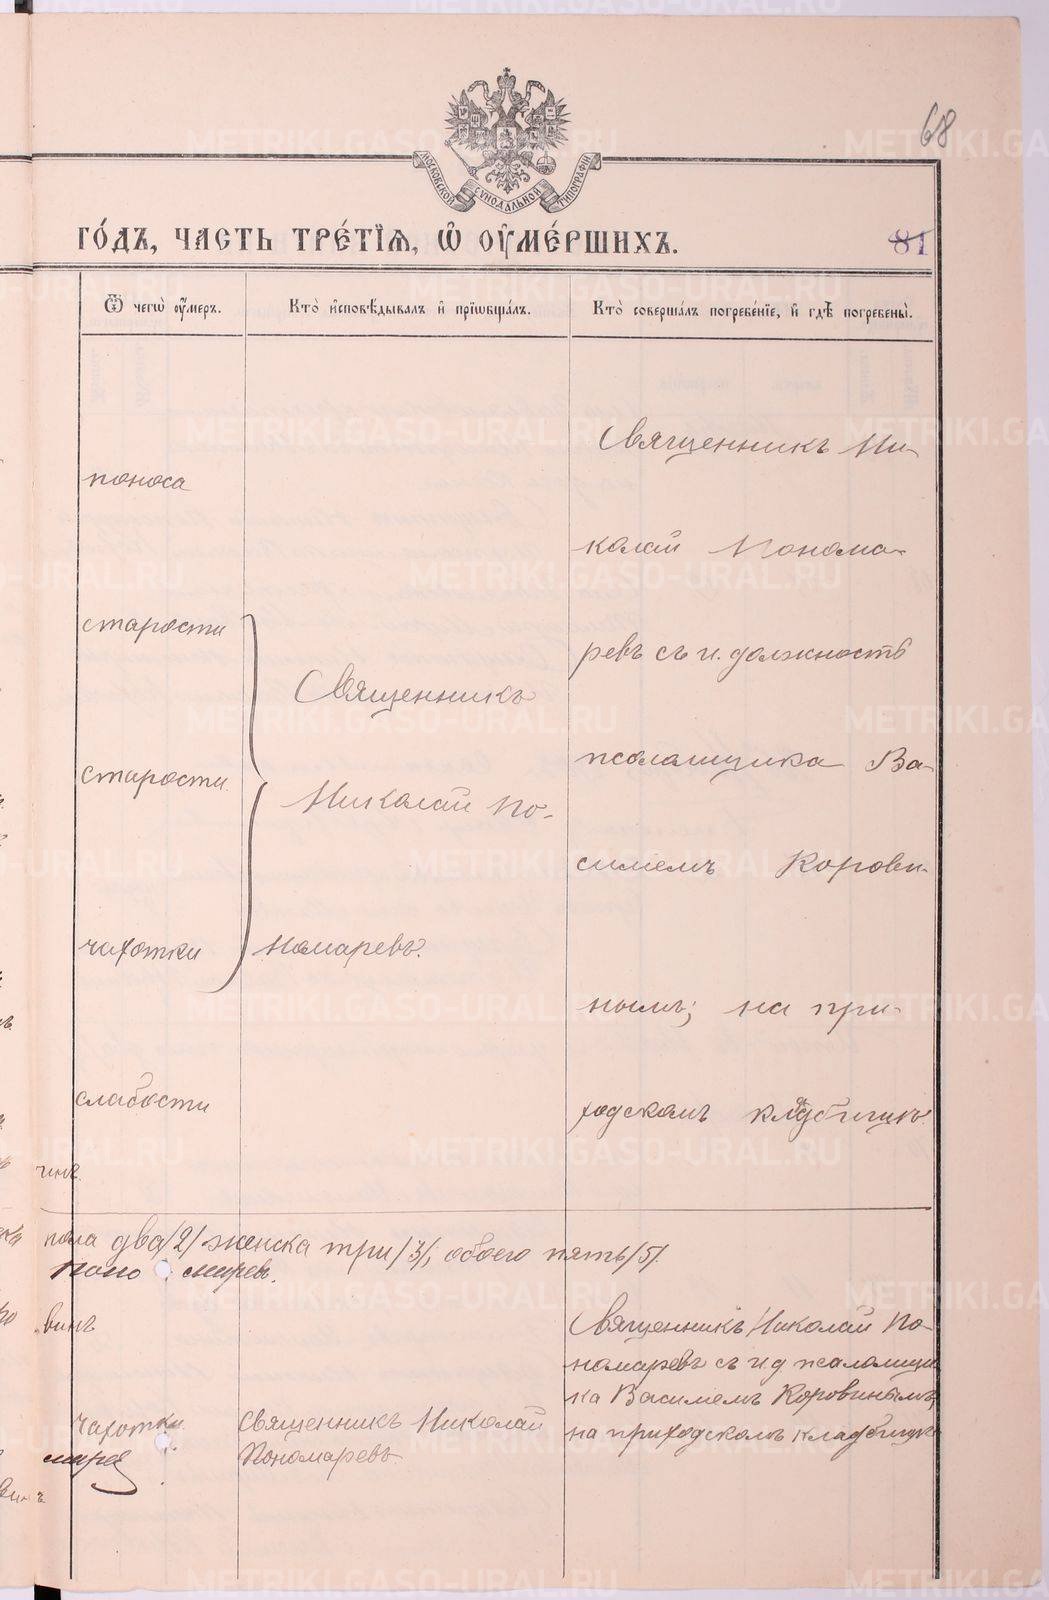 68
МОСКОВСКОЙ СѴНОДАЛЬНОЙ ТИПОГРАФІИ
ГО́ДЪ, ЧАСТЬ ТРЕ́ТІѦ, Ѡ҆ ОУ҆МЕ́РШИХЪ.
81
Ѿ чегѡ̀ оу҆́меръ.
Кто̀ и҆сповѣ́дывалъ и҆ прїѡбща́лъ.
Кто̀ соверша́лъ погребе́нїе, и҆ гдѣ̀ погребены̀.
поноса
старости
старости
чахотки
слабости
Священникъ
Николай По-
номаревъ.
Священникъ Ни-
колай Понома-
ревъ съ и. должность
псаломщика Ва-
силіемъ Корови-
нымъ; на при-
ходскомъ кладбищѣ
чинъ
пола два /2/ женска три /3/, обоего пять /5/.
поно
винъ
чахотки
Священникъ Николай
Пономаревъ
Священникъ Николай По-
номаревъ съ и д псаломщи
ка Василіемъ Коровинымъ,
на приходскомъ кладбищѣ
METRIKI.GASO-URAL.RU